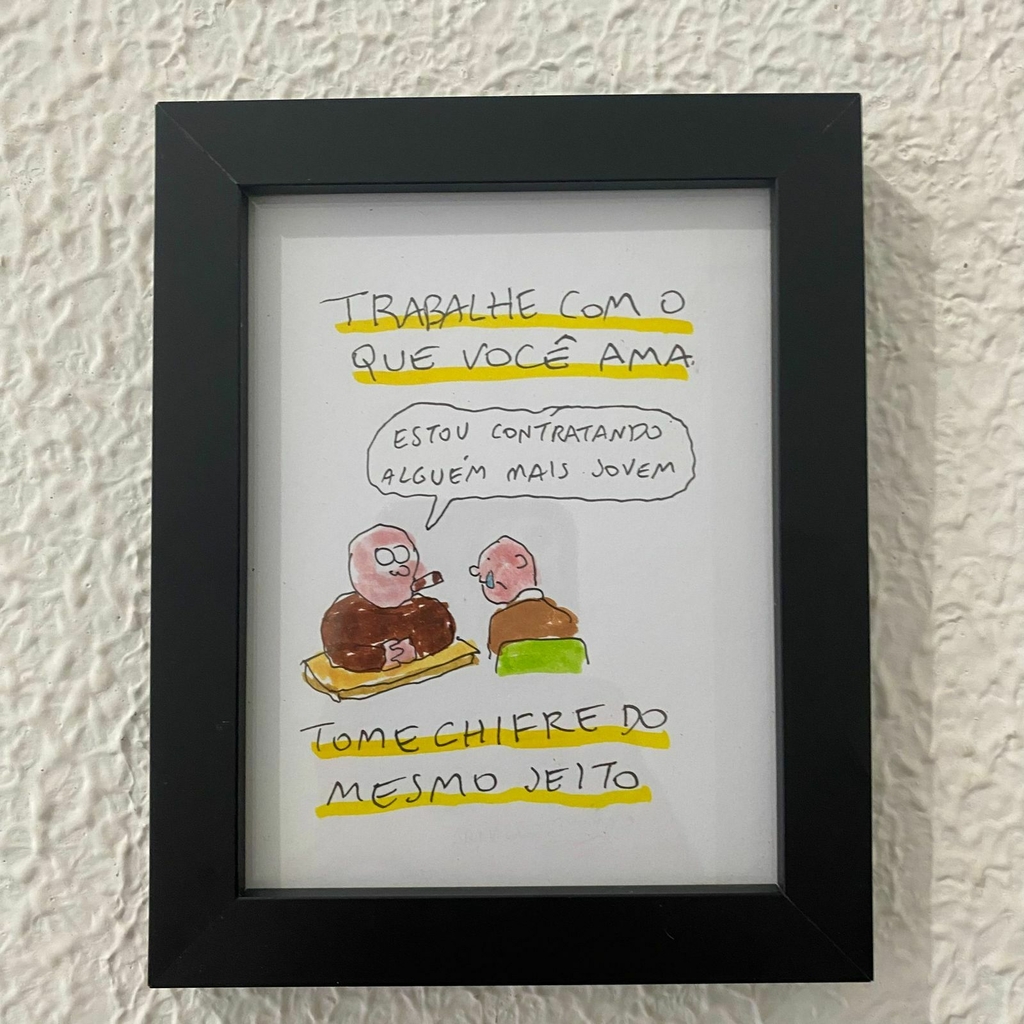 TRABALHE COM O
QUE VOCÊ AMA.
ESTOU CONTRATANDO
ALGUÉM MAIS JOVEM
TOME CHIFRE DO
MESMO JEITO